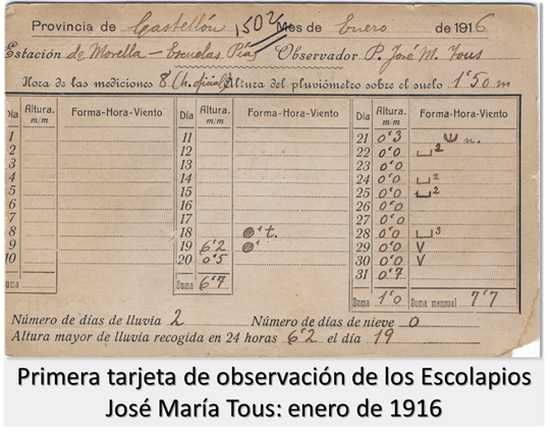 Provincia de Castellón 1502 Mes de Enero de 1916
Estación de Morella - Escuelas Pías Observador P. José M. Tous
Hora de las mediciones 8 (h. oficial) Altura del pluviómetro sobre el suelo 1'50 m
Día Altura. m/m Forma-Hora-Viento Día Altura. m/m Forma-Hora-Viento Día Altura. m/m Forma-Hora-Viento
1 11 21 0'3 n.
2 12 22 0'0 2
3 13 23 0'0
4 14 24 0'0 2
5 15 25 0'0 2
6 16 26 0'0
7 17 27 0'0
8 18 t. 28 0'0 3
9 19 6'2 29 0'0 V
10 20 0'5 30 0'0 V
31 0'7
Suma Suma 6'7 Suma 1'0 Suma mensual 7'7
Número de días de lluvia 2 Número de días de nieve 0
Altura mayor de lluvia recogida en 24 horas 6'2 el día 19
Primera tarjeta de observación de los Escolapios
José María Tous: enero de 1916